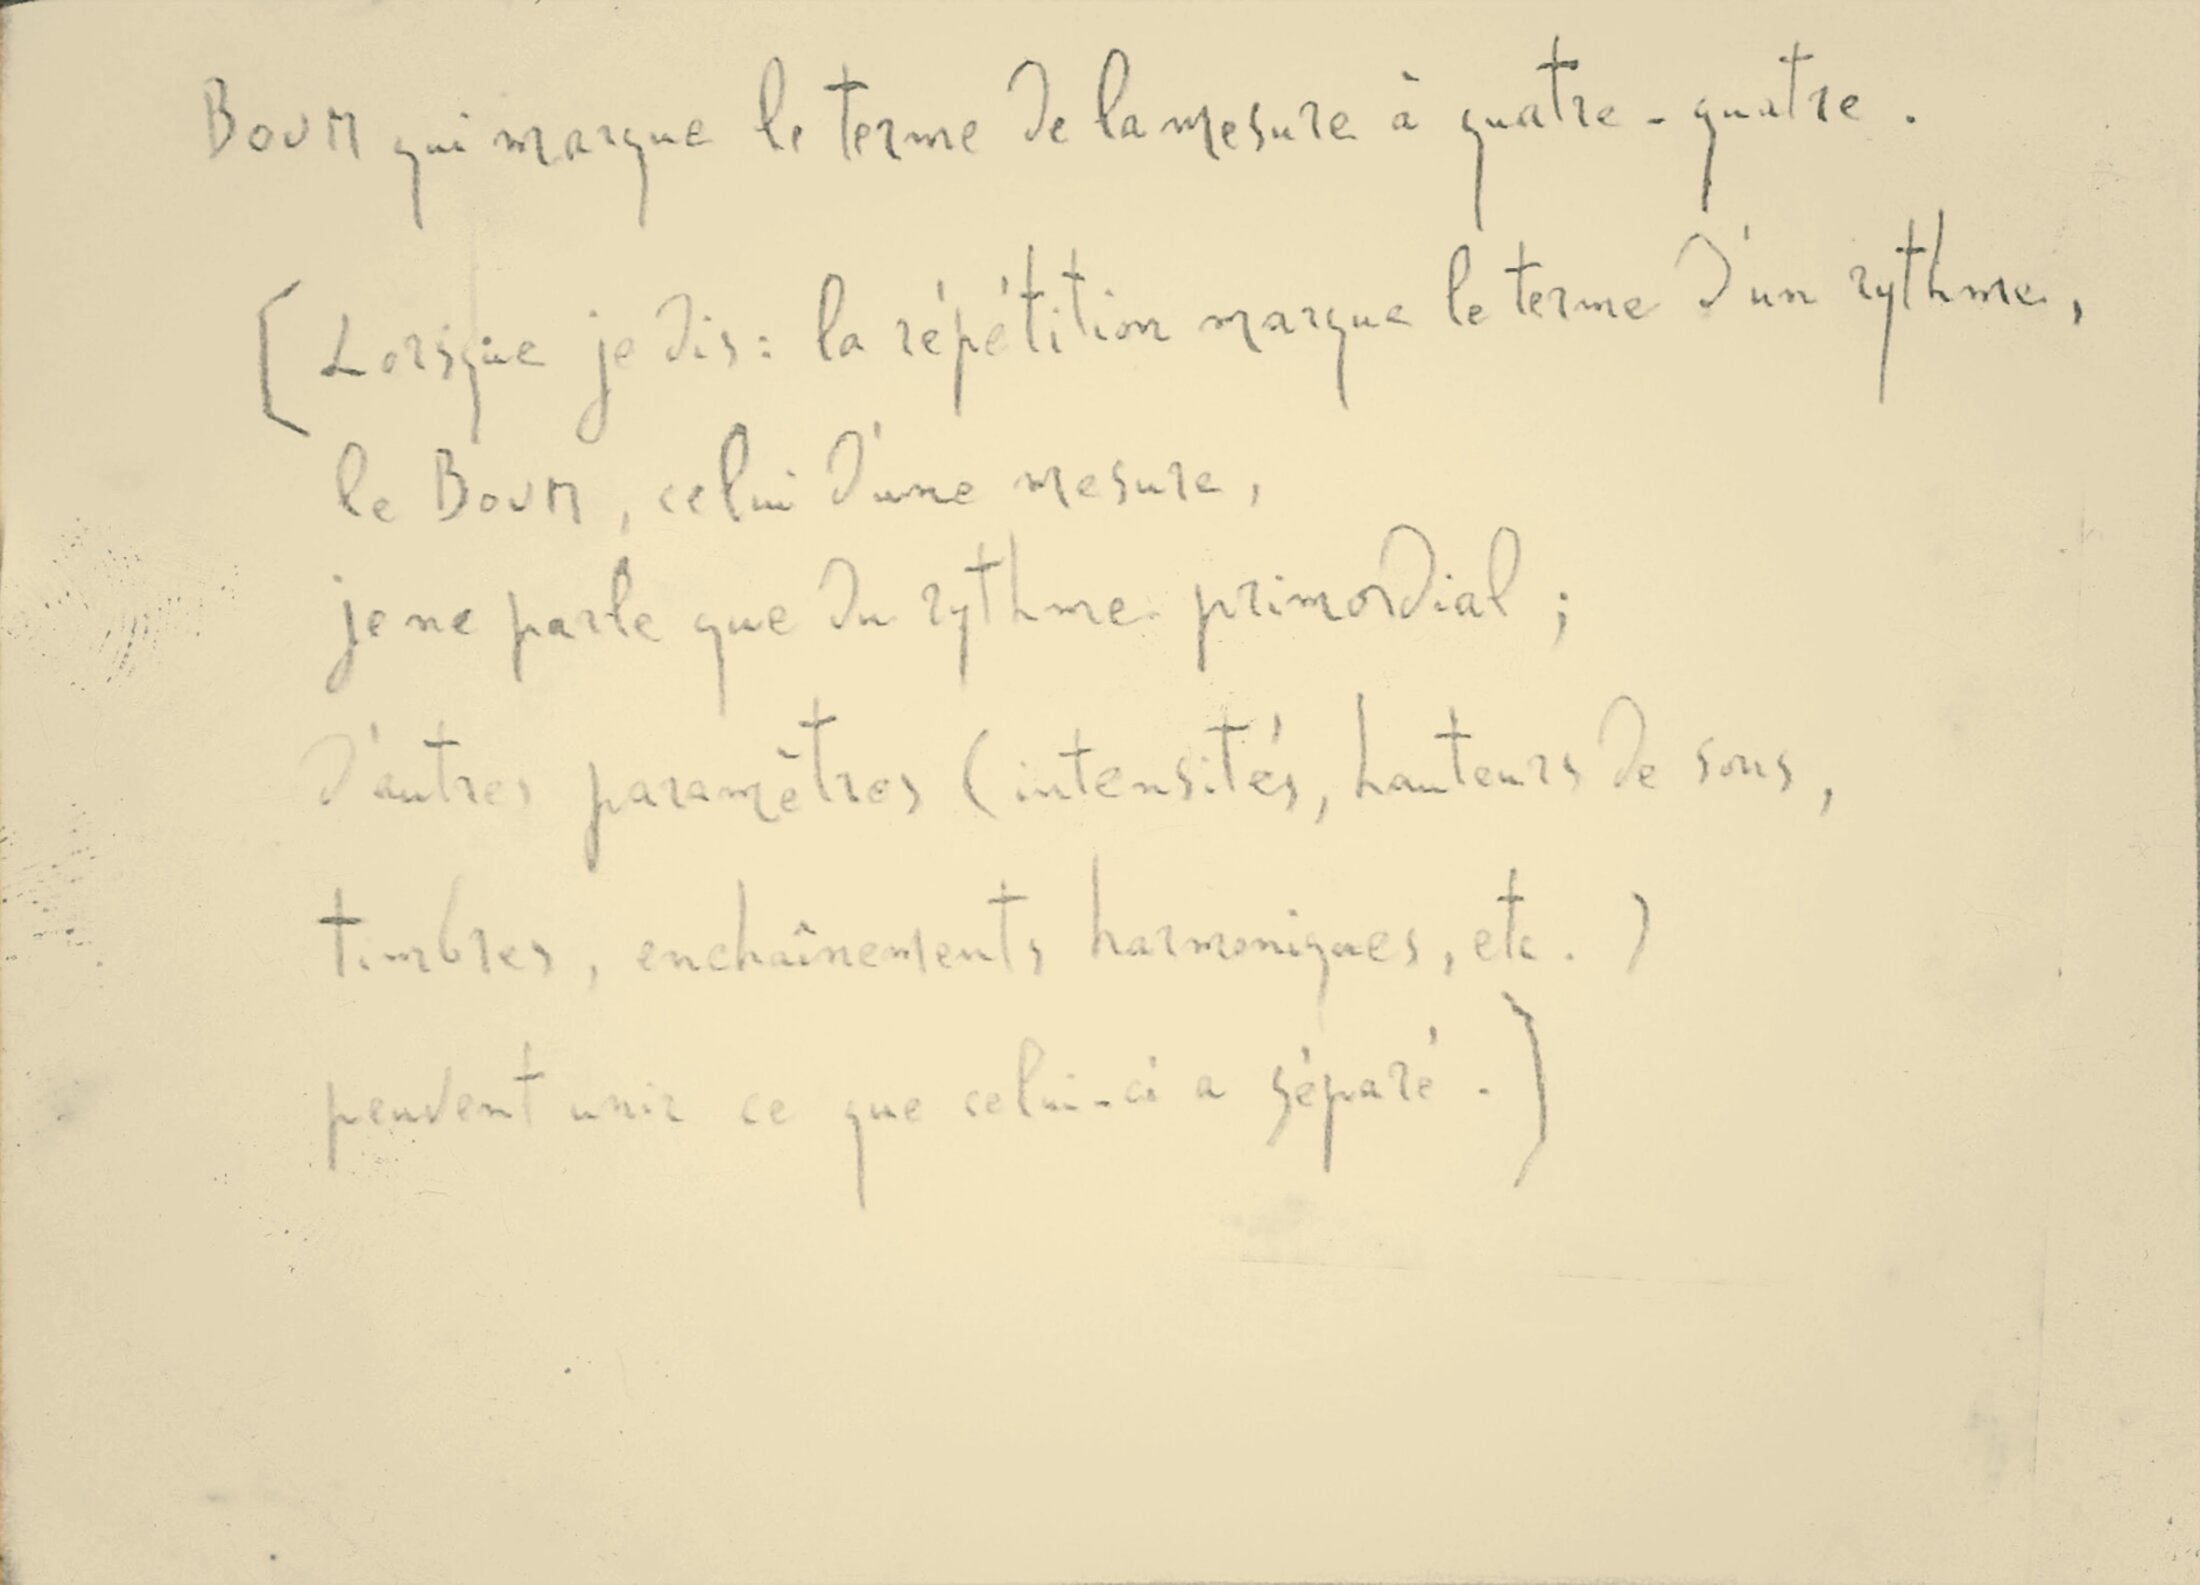 BOUM qui marque le terme de la mesure à quatre-quatre.
[Lorsque je dis : la répétition marque le terme d'un rythme,
le BOUM, celui d'une mesure,
je ne parle que du rythme primordial ;
d'autres paramètres (intensités, hauteurs de sons,
timbres, enchaînements harmoniques, etc.)
peuvent unir ce que celui-ci a séparé.]